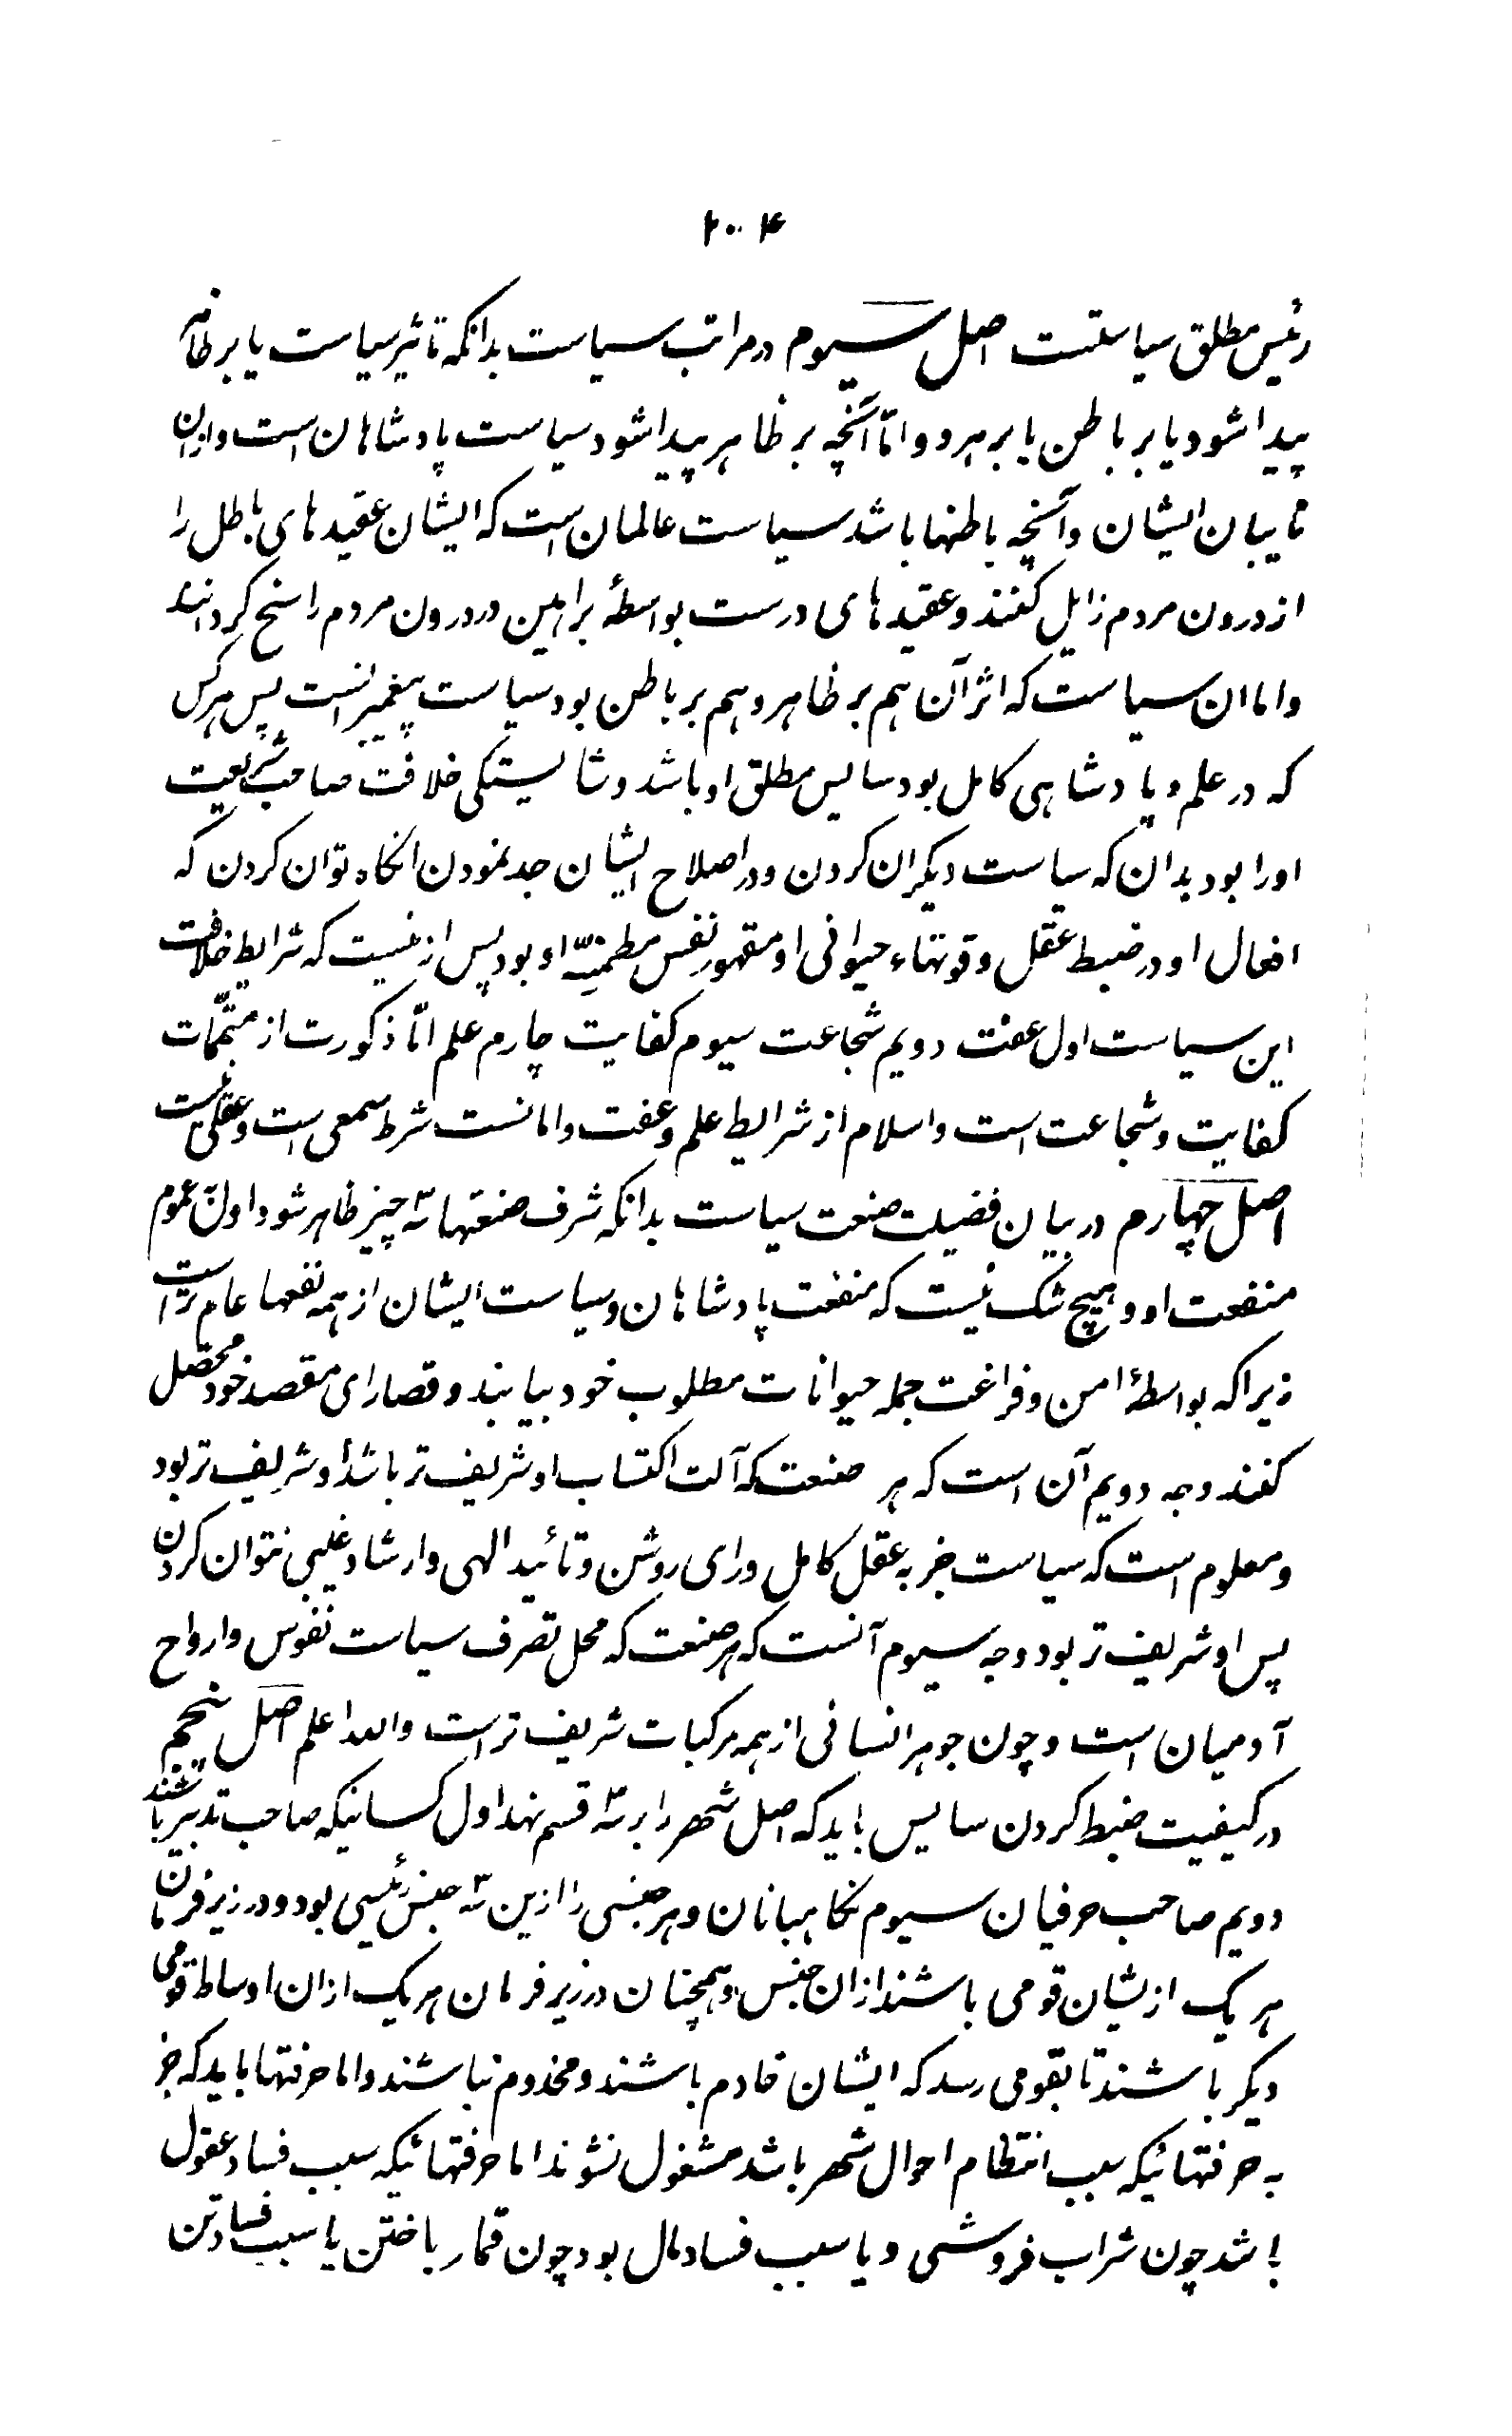 ۲۰۴
رئیس مطلق سیاستست اصل سیوم در مراتب سیاست بدانکه تاثیر سیاست یا بر ظاهر
پیدا شود یا بر باطن یا بر هر دو و امّا آنچه بر ظاهر پیدا شود سیاست پادشاهان است و این
نایبان ایشان و آنچه باطنها باشد سیاست عالمان است که ایشان عقیدهای باطل را
از درون مردم زایل کنند و عقیدهای درست بواسطهٔ براهین در درون مردم راسخ کردانند
و اما ان سیاست که اثر آن هم بر ظاهر و هم بر باطن بود سیاست پیغمبرانست پس هر کس
که در علم و پادشاهی کامل بود سایس مطلق او باشد و شایستکی خلافت صاحب شریعت
اورا بود بدان که سیاست دیکران کردن و در اصلاح ایشان جد نمودن انکاه توان کردن که
افعال او در ضبط عقل و قوتهاء حیوانی او مقهور نفس مطمئنّه او بود پس ازینست که شرایط خلافت
این سیاست اول عفت دویم شجاعت سیوم کفایت چارم علم امّا ذکورت از متمّمات
کفایت و شجاعت است و اسلام از شرایط علم و عفت و امانست شرط سمعی است و عقلی نیست
اصل چهارم در بیان فضیلت صنعت سیاست بدانکه شرف صنعتها سه چیز ظاهر شود اول عموم
منفعت او و هیچ شک نیست که منفعت پادشاهان و سیاست ایشان از همه نفعها عام تر است
زیرا که بواسطهٔ امن و فراغت جمله حیوانات مطلوب خود بیابند و قصارای مقصد خود محصّل
کنند وجه دویم آن است که هر صنعت که آلت اکتساب او شریف تر باشد او شریف تر بود
و معلوم است که سیاست جز به عقل کامل و رای روشن و تائید الهی و ارشاد غیبی نتوان کردن
پس او شریف تر بود وجه سیوم آنست که هر صنعت که محل تصرف سیاست نفوس و ارواح
آدمیان است و چون جوهر انسانی از همه مرکبات شریف تر است والله اعلم اصل پنجم
در کیفیت ضبط کردن سایس باید که اصل شهر را بر سه قسم نهد اول کسانیکه صاحب تدبیر باشند
دویم صاحب حرفیان سیوم نکاهبانان و هر جنسی را ازین سه جنس رئیسی بود و در زیر فرمان
هر یک از یشان قومی باشند از ان جنس و همچنان در زیر فرمان هر یک از ان اوساط قومی
دیکر باشند تا بقومی رسد که ایشان خادم باشند و مخدوم نباشند و اما حرفتها باید که جز
به حرفتهائیکه سبب انتظام احوال شهر باشد مشغول نشوند اما حرفتهائیکه سبب فساد عقول
باشد چون شراب فروشی و یا سبب فساد مال بود چون قمار باختن یا سبب فساد تن